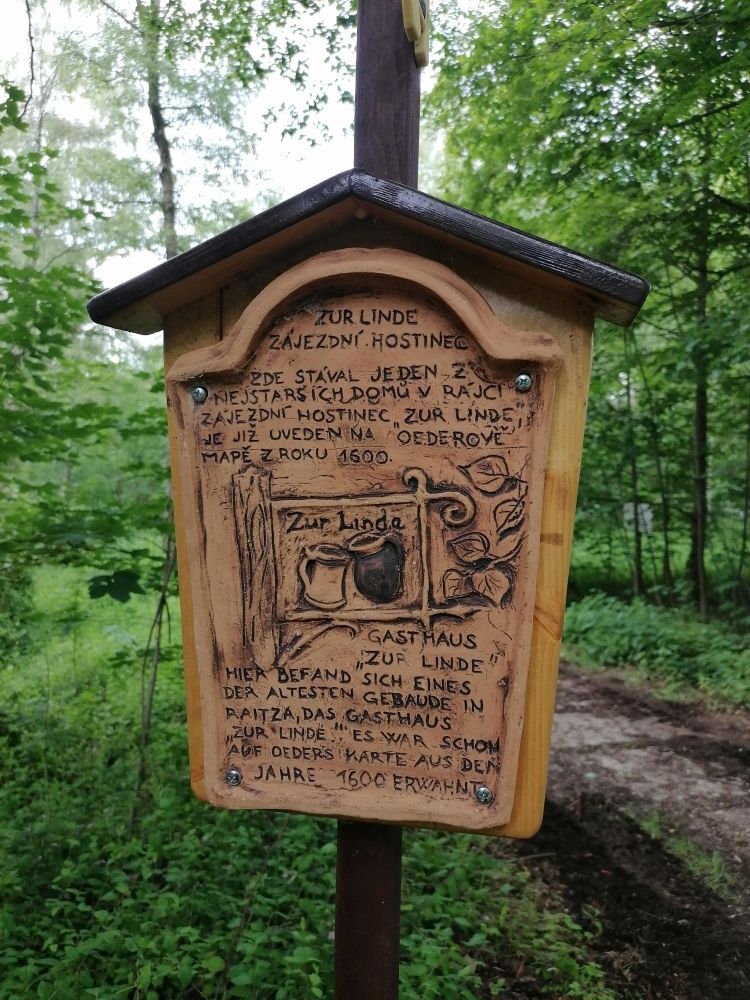 ZUR LINDE
ZÁJEZDNÍ HOSTINEC
ZDE STÁVAL JEDEN Z
NEJSTARŠÍCH DOMŮ V RÁJCI
ZÁJEZDNÍ HOSTINEC „ZUR LINDE",
JE JIŽ UVEDEN NA „OEDEROVĚ"
MAPĚ Z ROKU 1600.
Zur Linda
GASTHAUS
„ZUR LINDE"
HIER BEFAND SICH EINES
DER ÄLTESTEN GEBÄUDE IN
RAITZA, DAS GASTHAUS
„ZUR LINDE." ES WAR SCHON
AUF OEDERS KARTE AUS DEM
JAHRE 1600 ERWÄHNT.